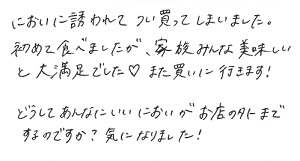 においに誘われて つい買ってしまいました。
初めて食べましたが、家族みんな美味しい
と大満足でした♡ また買いに行きます!
どうしてあんなにいいにおいがお店の外まで
するのですか?気になりました!